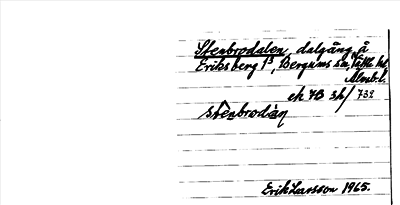 Stenbrodalen, dalgång å
Eriksberg 1³, Bergums sn, Vättle hd,
Älvsb. l.
ek 7B 3h/732
stènbrodán
Erik Larsson 1965.